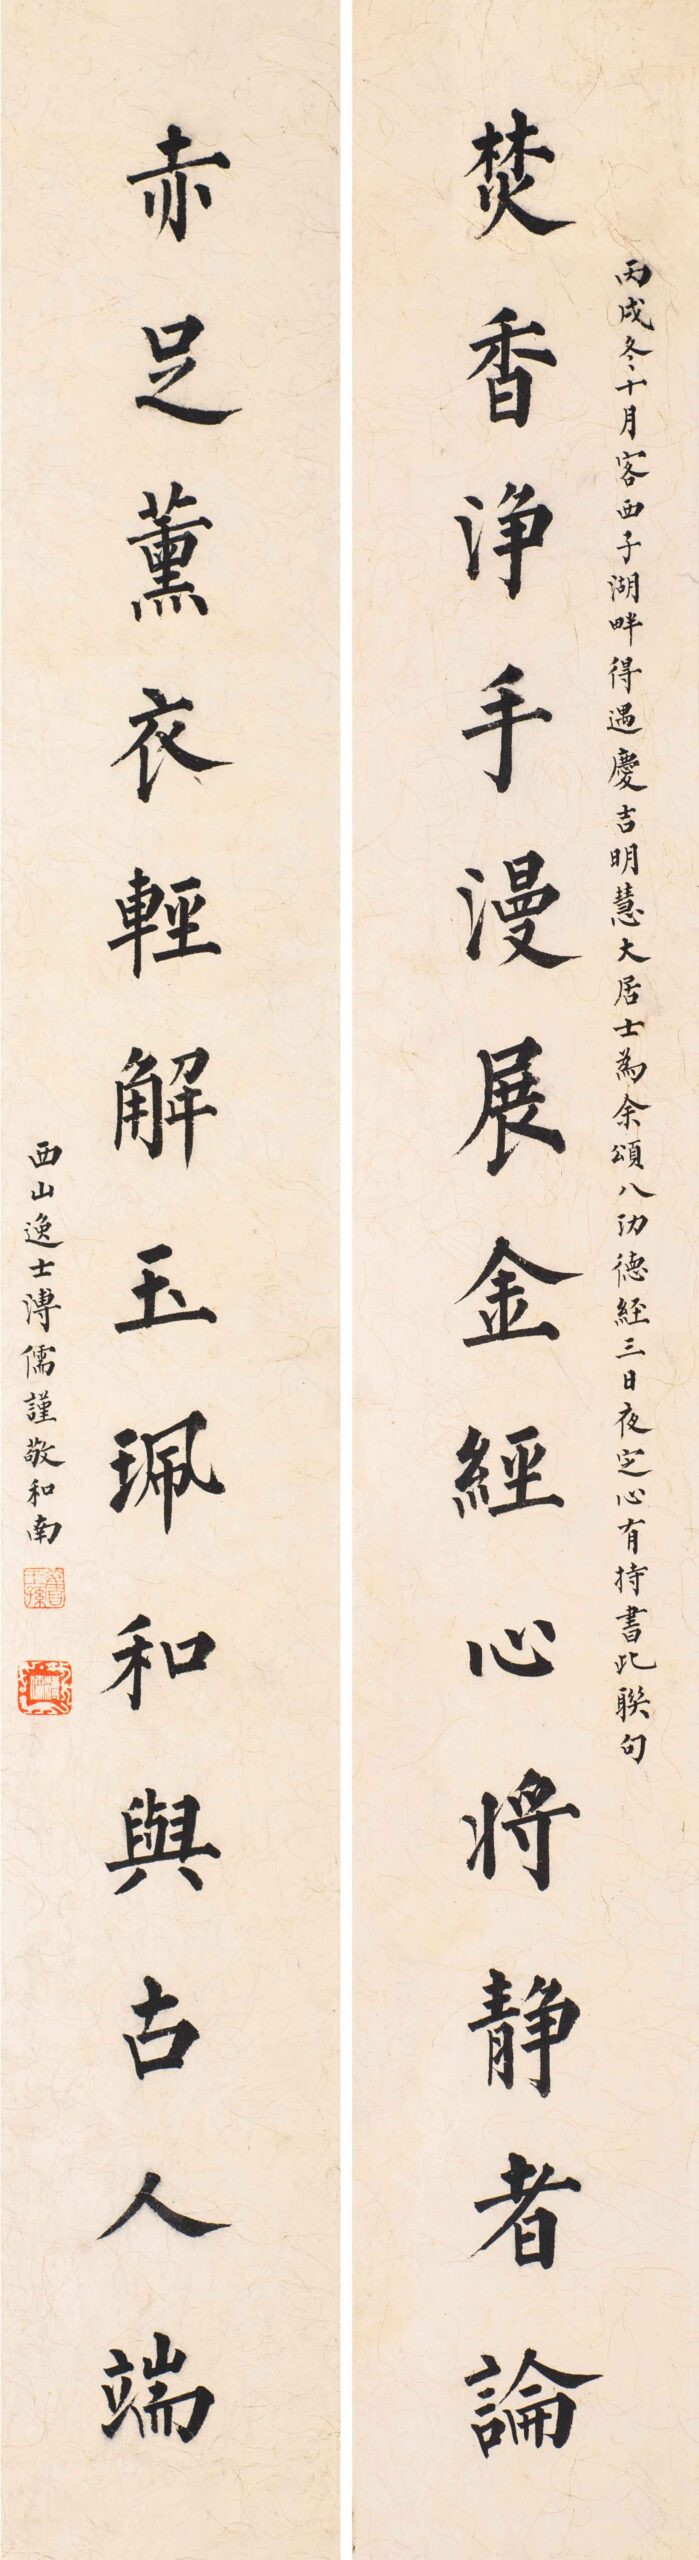 丙戌冬十月客西子湖畔得遇慶吉明慧大居士為余頌八功德經三日夜定心有持書此聯句
焚香浄手漫展金經心将静者論
赤足薰衣輕解玉珮和與古人端
西山逸士溥儒謹敬和南